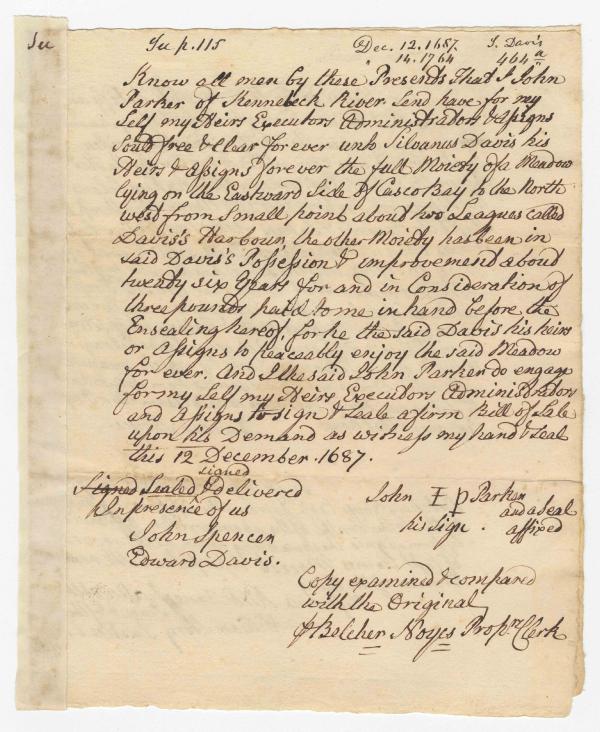 See
See p. 115
Dec. 12. 1687.
14. 1764
S. Davis
464 a
Know all men by these Presents That I John
Parker of Kennebeck River Send have for my
Self my Heirs Executors Administrators & assigns
Sould free & Clear for ever unto Silvanus Davis his
Heirs & assigns forever the full Moiety of a Meadow
lying on the Eastward Side of Casco Bay to the North
west from Small point about two Leagues called
Davis's Harbour, the other Moiety has been in
said Davis's Possession & improvement about
twenty six Years for and in Consideration of
three pounds paid to me in hand before the
Ensealing hereof, for he the said Davis his heirs
or assigns to peaceably enjoy the said Meadow
for ever. And I the said John Parker do engage
for my Self my Heirs Executors Administrators
and assigns to sign & seale a firm Bill of Sale
upon his Demand as witness my hand & Seal
this 12 December. 1687.
signed
Signed Sealed & delivered
In presence of us
John Spencer
Edward Davis.
John I P Parker
his sign.
and a Seal
affixed
Copy examined & compared
with the Original
p Belcher Noyes Prop.rs Clerk